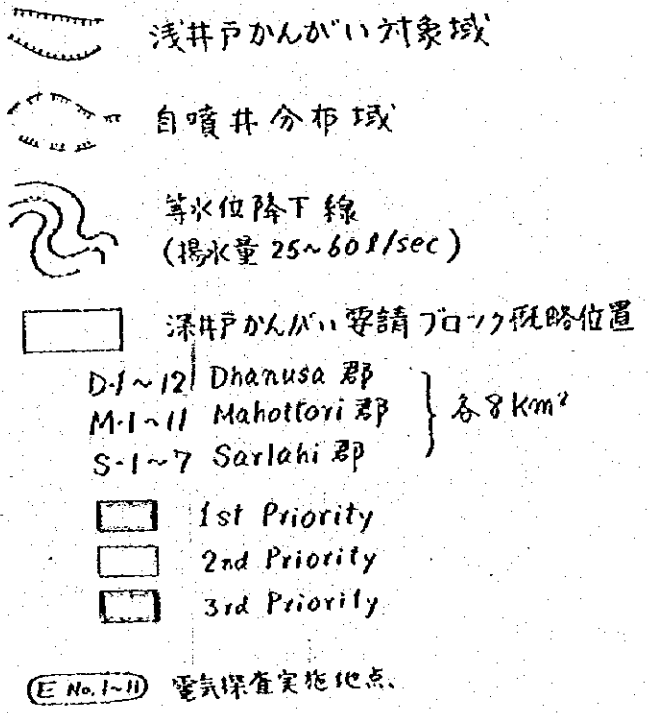 浅井戸かんがい対象域
自噴井分布域
等水位降下線
(揚水量 25~60l/sec)
深井戸かんがい要請ブロック概略位置
D-1~12 Dhanusa 郡
M-1~11 Mahottori 郡
S-1~7 Sarlahi 郡
各8Km²
1st Priority
2nd Priority
3rd Priority
E No.1~11 電気探査実施地点、